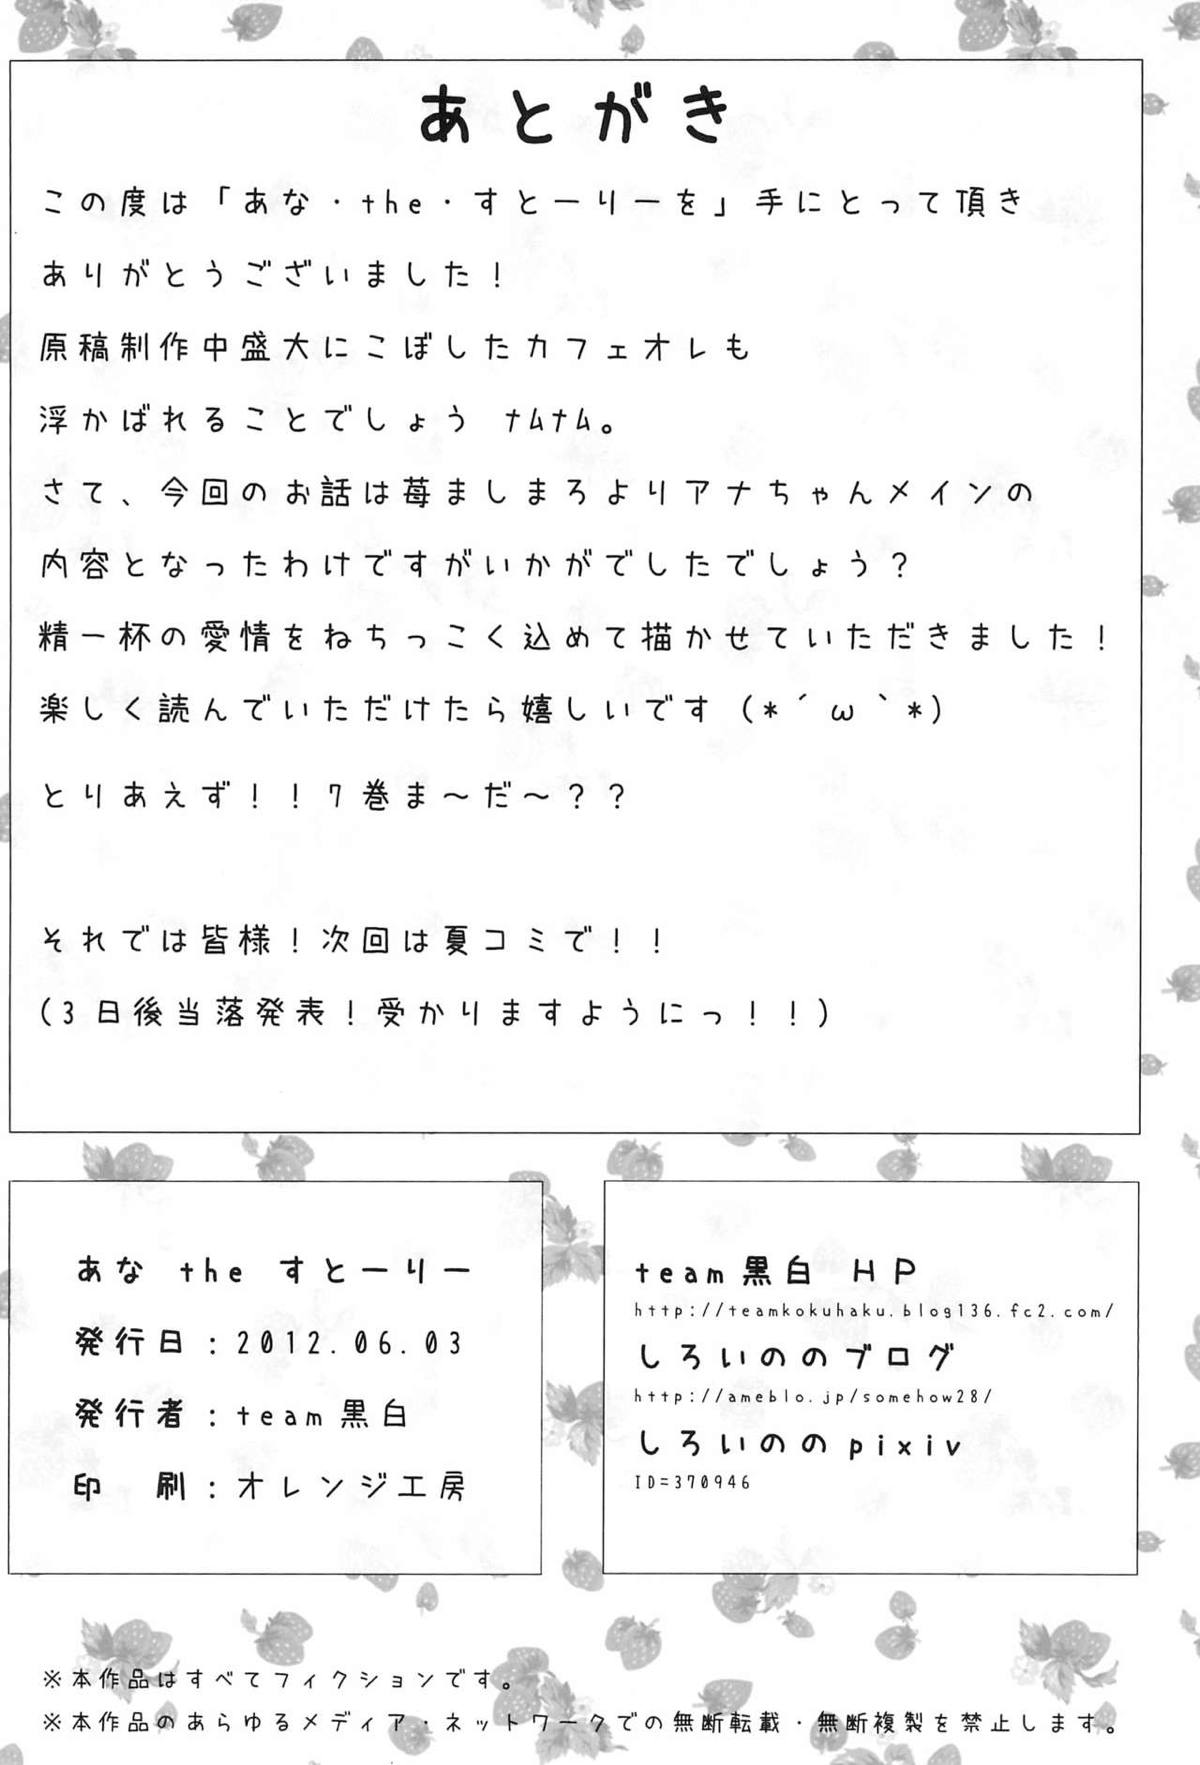 あとがき
この度は「あな・the・すとーりーを」手にとって頂き
ありがとうございました！
原稿制作中盛大にこぼしたカフェオレも
浮かばれることでしょう ﾅﾑﾅﾑ。
さて、今回のお話は苺ましまろよりアナちゃんメインの
内容となったわけですがいかがでしたでしょう？
精一杯の愛情をねちっこく込めて描かせていただきました！
楽しく読んでいただけたら嬉しいです (*´ω｀*)
とりあえず！！7巻ま～だ～？？
それでは皆様！次回は夏コミで！！
(3日後当落発表！受かりますようにっ！！)
あな the すとーりー
発行日：2012.06.03
発行者：team黒白
印　刷：オレンジ工房
team黒白 HP
http://teamkokuhaku.blog136.fc2.com/
しろいののブログ
http://ameblo.jp/somehow28/
しろいののpixiv
ID=370946
※本作品はすべてフィクションです。
※本作品のあらゆるメディア・ネットワークでの無断転載・無断複製を禁止します。